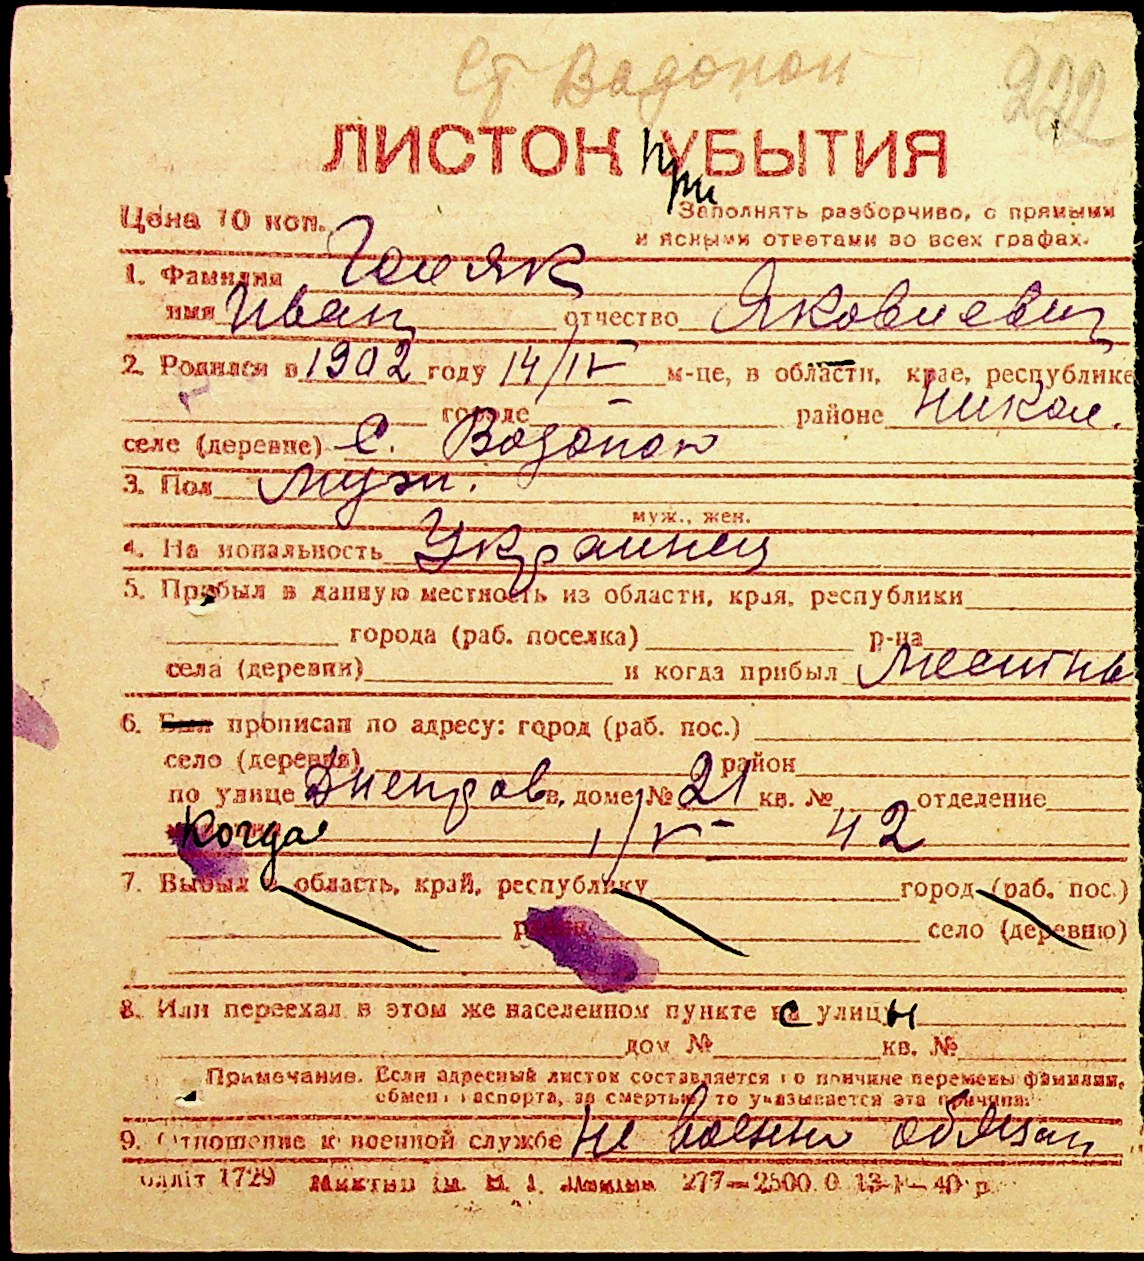 Ст Водопой
222
ЛИСТОК при УБЫТИЯ
Цена 10 коп.
Заполнять разборчиво, с прямыми
и ясными ответами во всех графах.
1. Фамилия Голяк
имя Иван отчество Яковлевич
2. Родился в 1902 году 14/IV м-це, в области, крае, республике
городе районе Никол.
селе (деревне) с. Водопой
3. Пол муж.
муж., жен.
4. Национальность Украинец
5. Прибыл в данную местность из области, края, республики
города (раб. поселка) р-на
села (деревни) и когда прибыл местны
6. Был прописан по адресу: город (раб. пос.)
село (деревня) район
по улице Днепров в доме № 21 кв. № отделение
когда 1/V - 42
7. Выбыл в область, край, республику город (раб. пос.)
район село (деревню)
8. Или переехал в этом же населенном пункте с улицы
дом № кв. №
Примечание. Если адресный листок составляется по причине перемены фамилии,
обмена паспорта, за смертью, то указывается эта причина.
9. Отношение к военной службе не военно обязан
1729 277—2500.0 13-I—40 р.